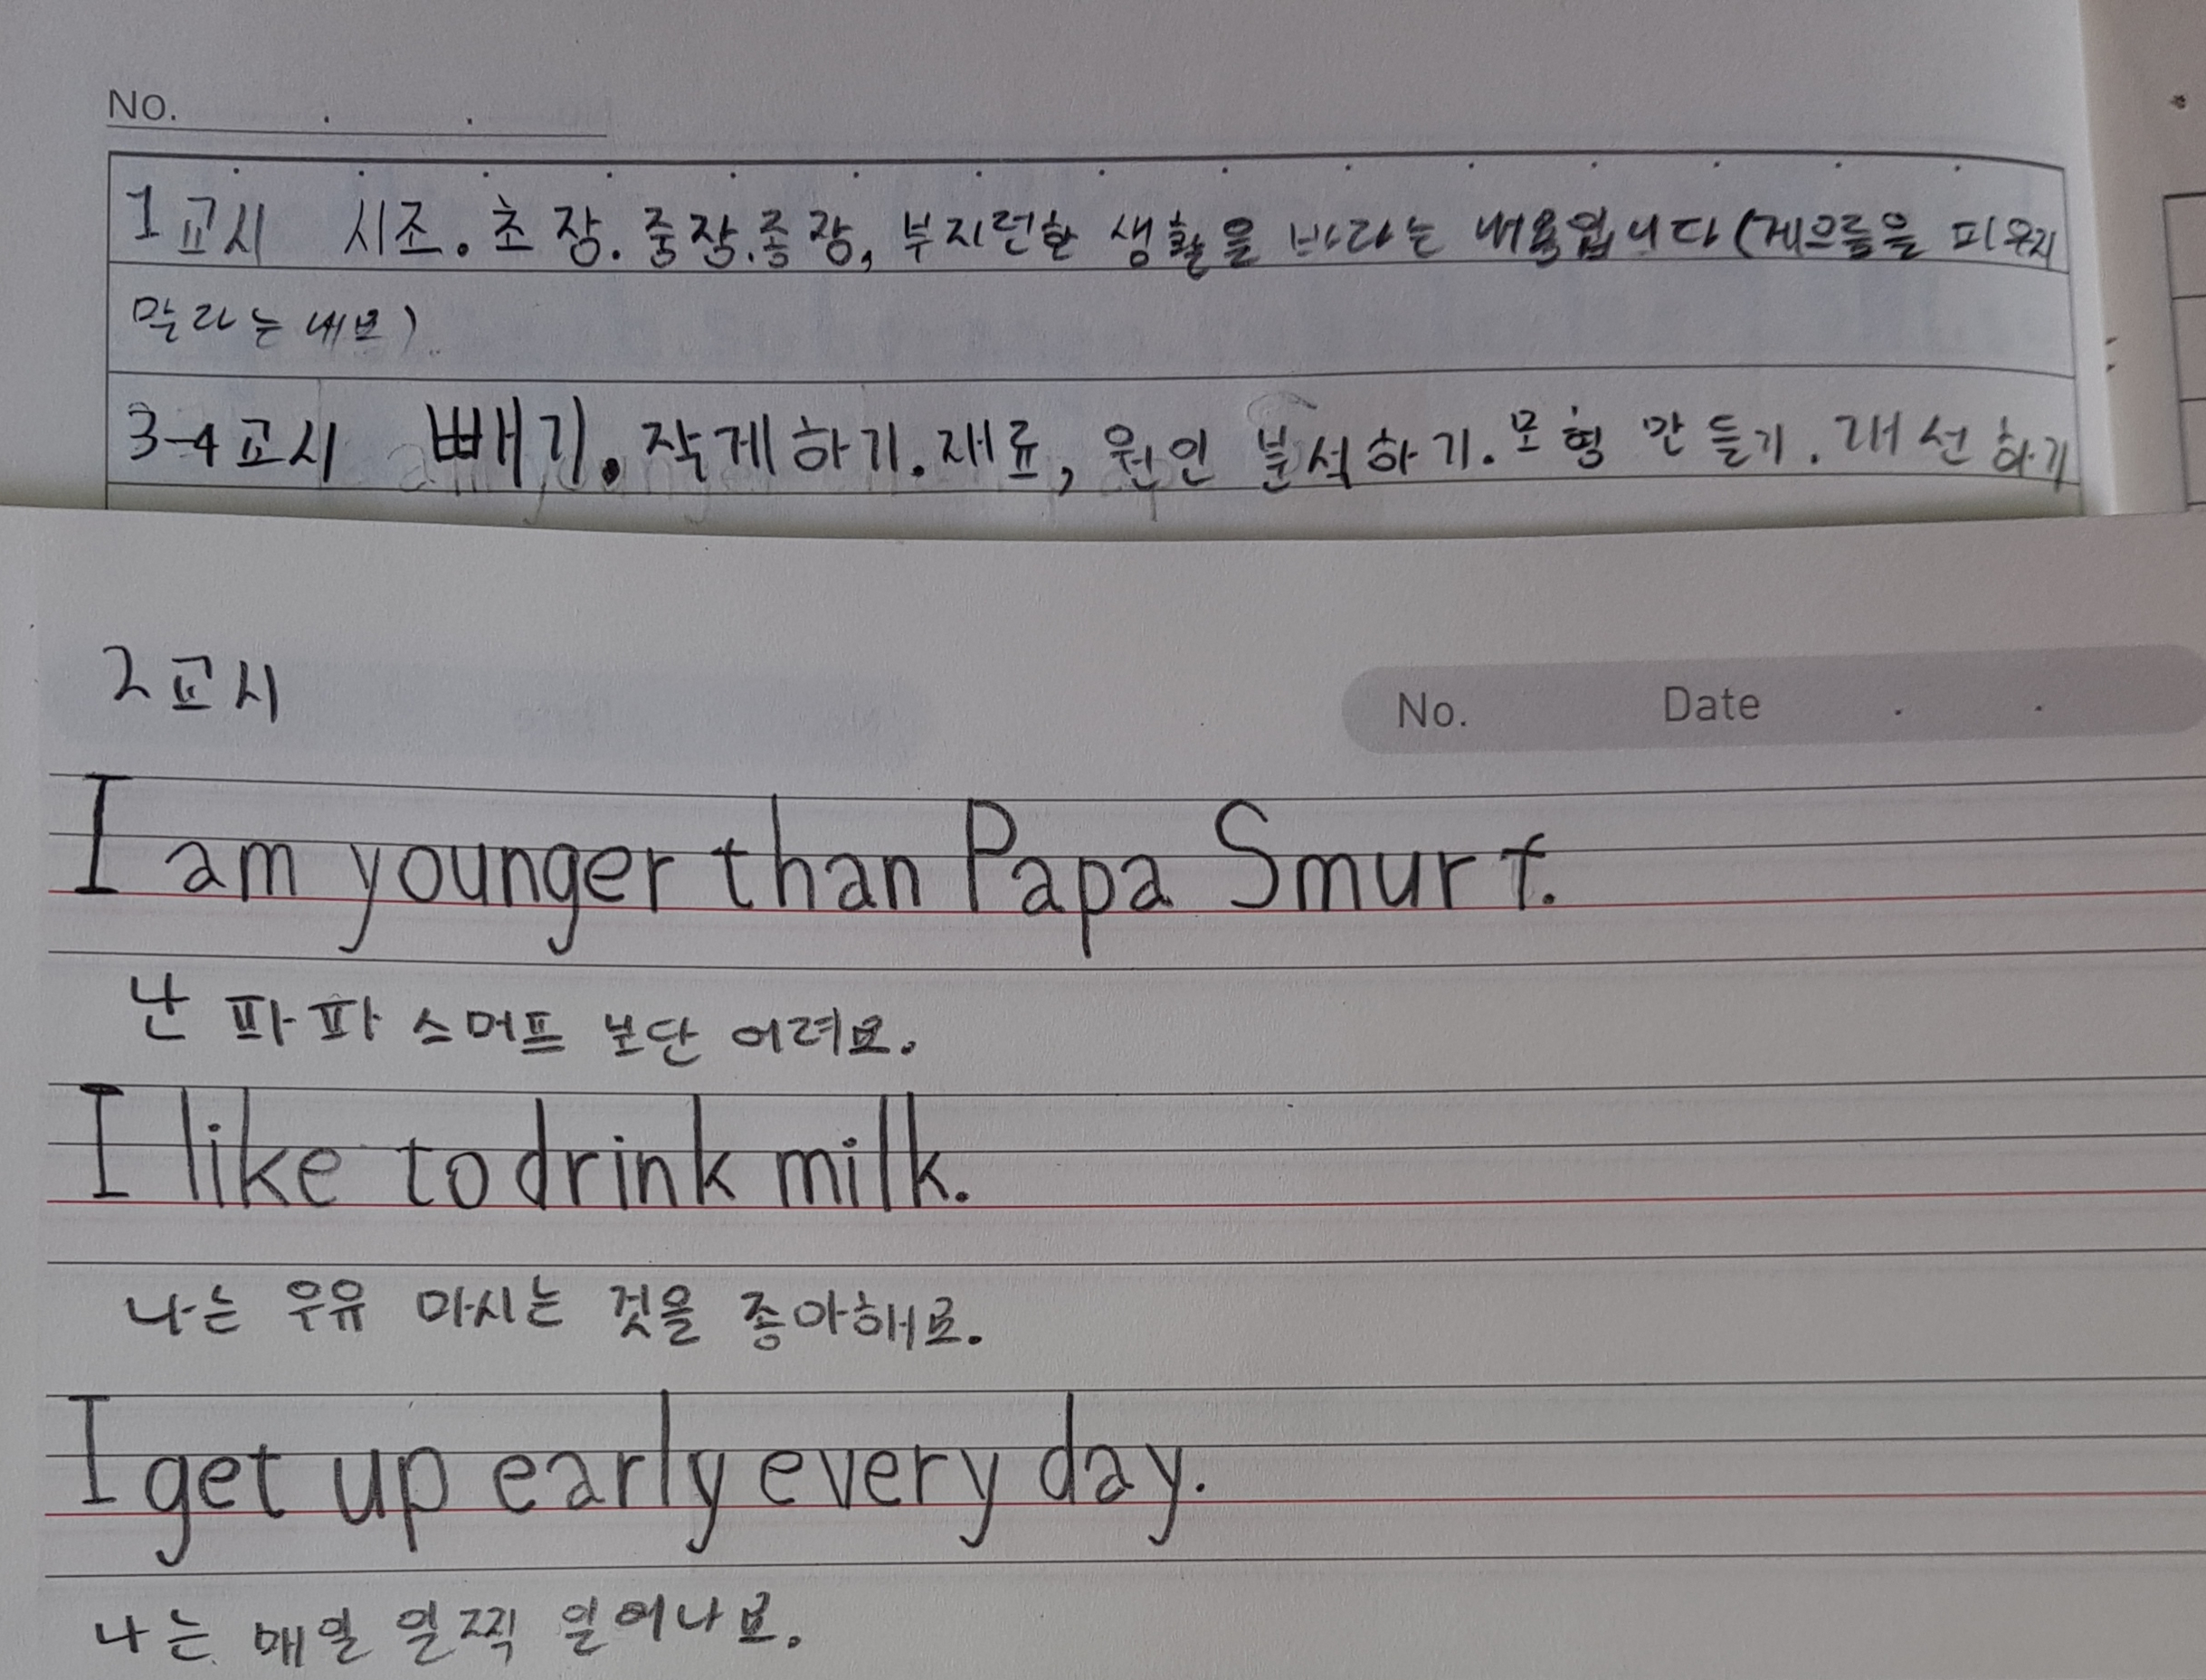 No.
1교시 시조. 초장. 중장. 종장, 부지런한 생활을 바라는 내용입니다 (게으름을 피우지
말라는 내용)
3-4교시 빼기. 작게하기. 재료, 원인 분석하기. 모형 만들기. 개선하기
2교시
No. Date
I am younger than Papa Smurf.
난 파파 스머프 보단 어려요.
I like to drink milk.
나는 우유 마시는 것을 좋아해요.
I get up early every day.
나는 매일 일찍 일어나요.